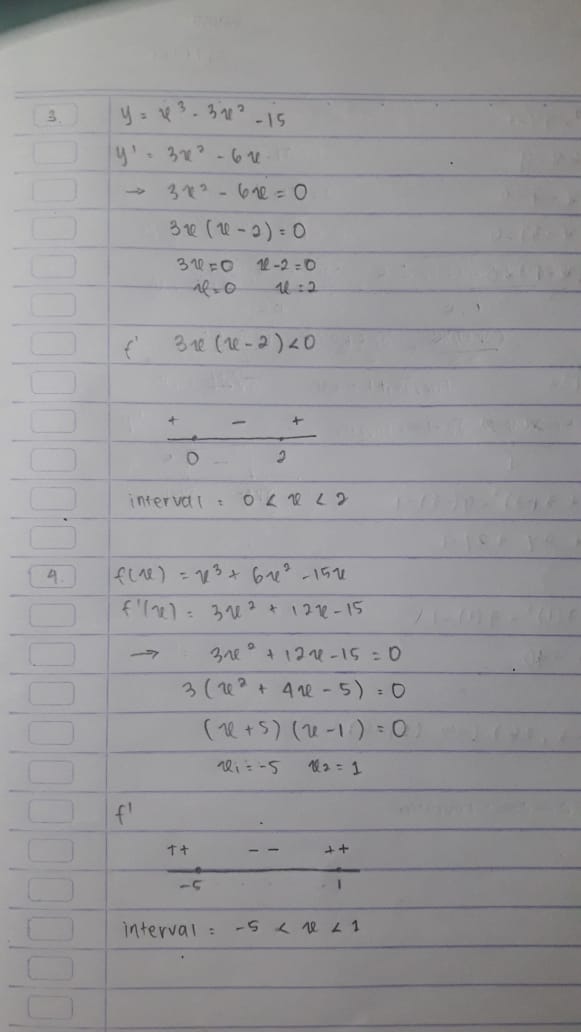 3. y = x³ - 3x² - 15
y' = 3x² - 6x
→ 3x² - 6x = 0
3x (x - 2) = 0
3x = 0 x - 2 = 0
x = 0 x = 2
f' 3x (x - 2) < 0
+ - +
0 2
interval = 0 < x < 2
4. f(x) = x³ + 6x² - 15x
f'(x) = 3x² + 12x - 15
→ 3x² + 12x - 15 = 0
3 (x² + 4x - 5) = 0
(x + 5) (x - 1) = 0
x₁ = -5 x₂ = 1
f'
++ -- ++
-5 1
interval = -5 < x < 1